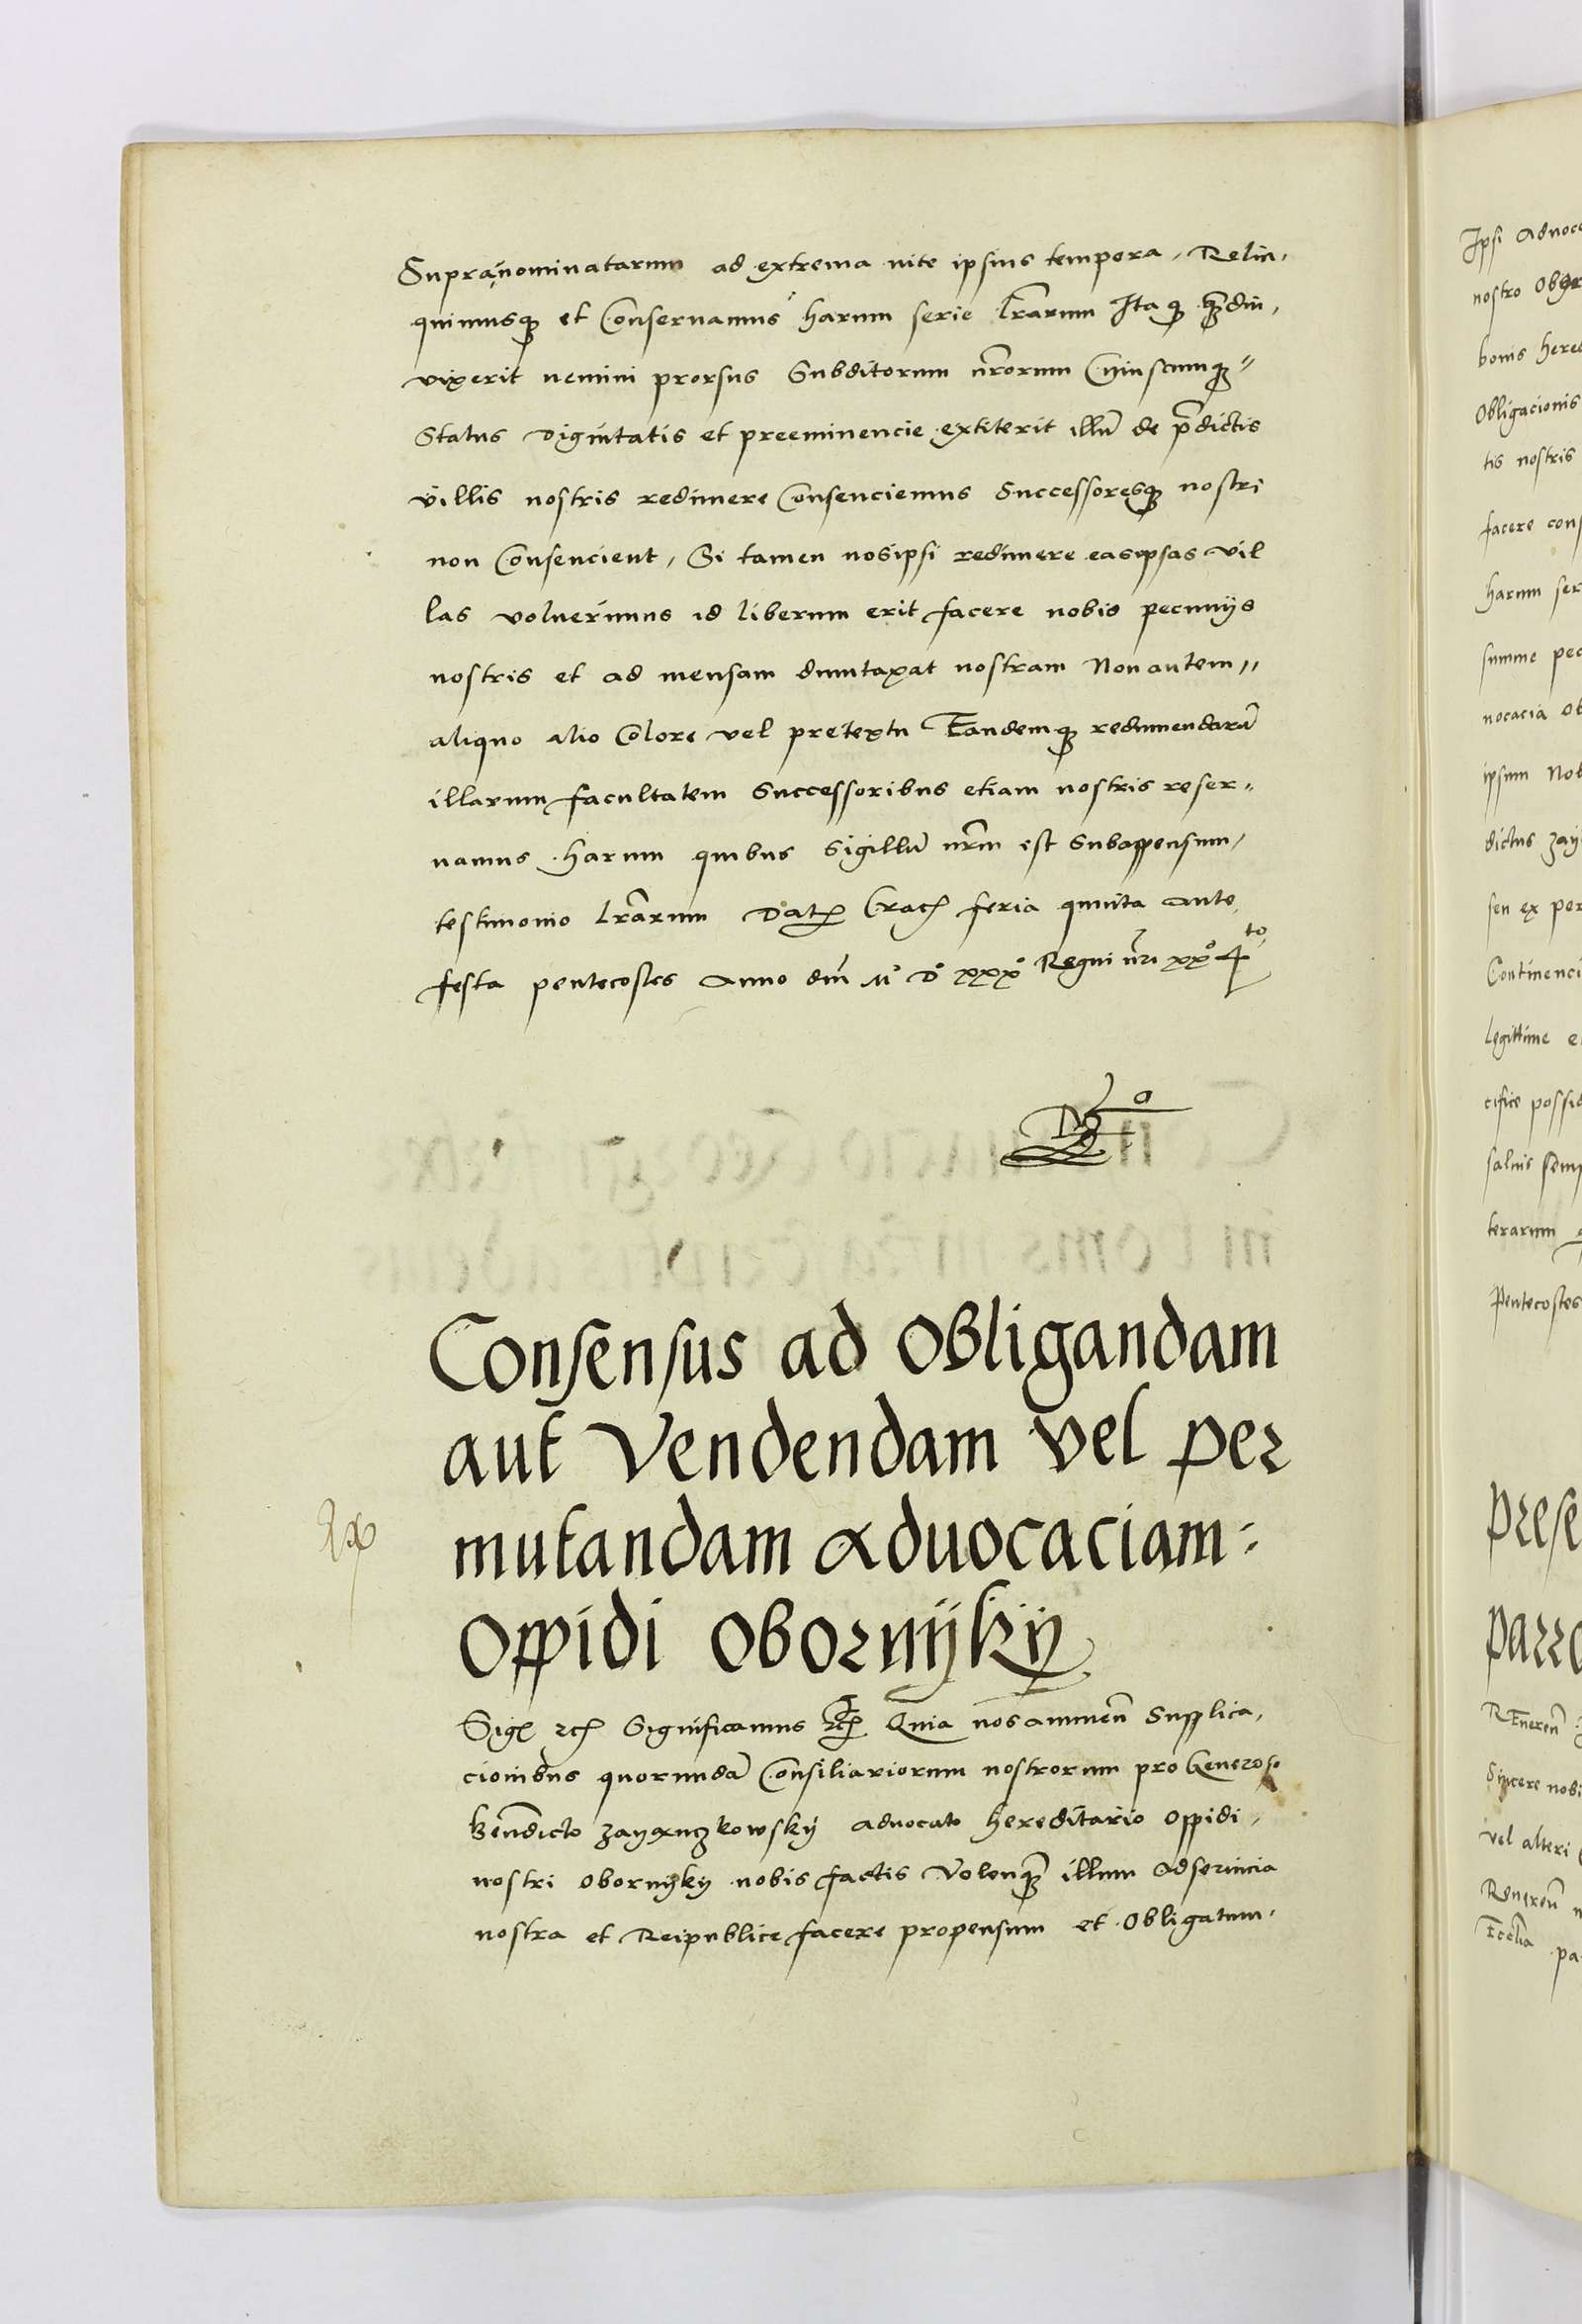 Supranominatarum ad extrema vite ipsius tempora, Relin,
quimusq3 et Conseruamus harum serie lr̃arum Ita q3 q̃mdiu,
vixerit nemini prorsus Subditorum nr̃orum Cuiuscumq3
Status Dignitatis et preeminencie extiterit illũ de p̃dictis
villis nostris redimere Consenciemus Successoresq3 nostri
non Consencient, Si tamen nosipsi redimere easipsas vil
las voluerimus id liberum erit facere nobis pecunijs
nostris et ad mensam dumtaxat nostram Non autem,,
aliquo alio Colore vel pretextu Eandemq3 redimendarũ
illarum facultatem Successoribus etiam nostris reser,,
uamus harum quibus Sigillũ nr̃m est Subappensum,
testimonio lr̃arum Dat Crac feria quinta ante
festa pentecostes Anno dñi M° D° xxx° Regni nr̃i xx° 4to
Consensus ad Obligandam
aut Vendendam vel per
mutandam Aduocaciam:
Oppidi Obornyky
Sig̃ rc̃ Significamus rc̃ Quia nos annuen̄ Supplica,
cionibus quorundã Consiliariorum nostrorum pro Generoso
Ben̄dicto Zayączkowsky aduocato hereditario Oppidi,
nostri Obornyky nobis factis Volenq3 illum Ad seruicia
nostra et Reipublice facere propensum et Obligatum.
Ipsi Aduoca
nostro Obor
bonis here
Obligacionis
tis nostris
facere cons
harum ser
summe pec
uocacia Ob
ipsum Nob
dictus Zay
seu ex per
Continenci
legittime e
cifice possid
saluis semp
terarum
Pentecostes
prese
parro
Reueren̄
Sincere nobi
vel alteri
Reueren̄ n
Eccl̃ia pa